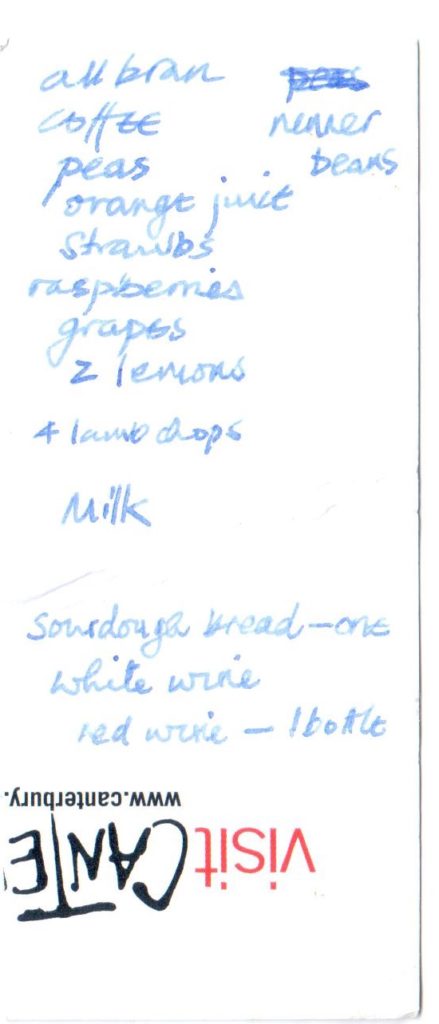 all bran
coffee
peas
orange juice
strawbs
raspberries
grapes
2 lemons
4 lamb chops
Milk
runner
beans
sourdough bread - one
white wine
red wine - 1 bottle
www.canterbury.
visit CANTE